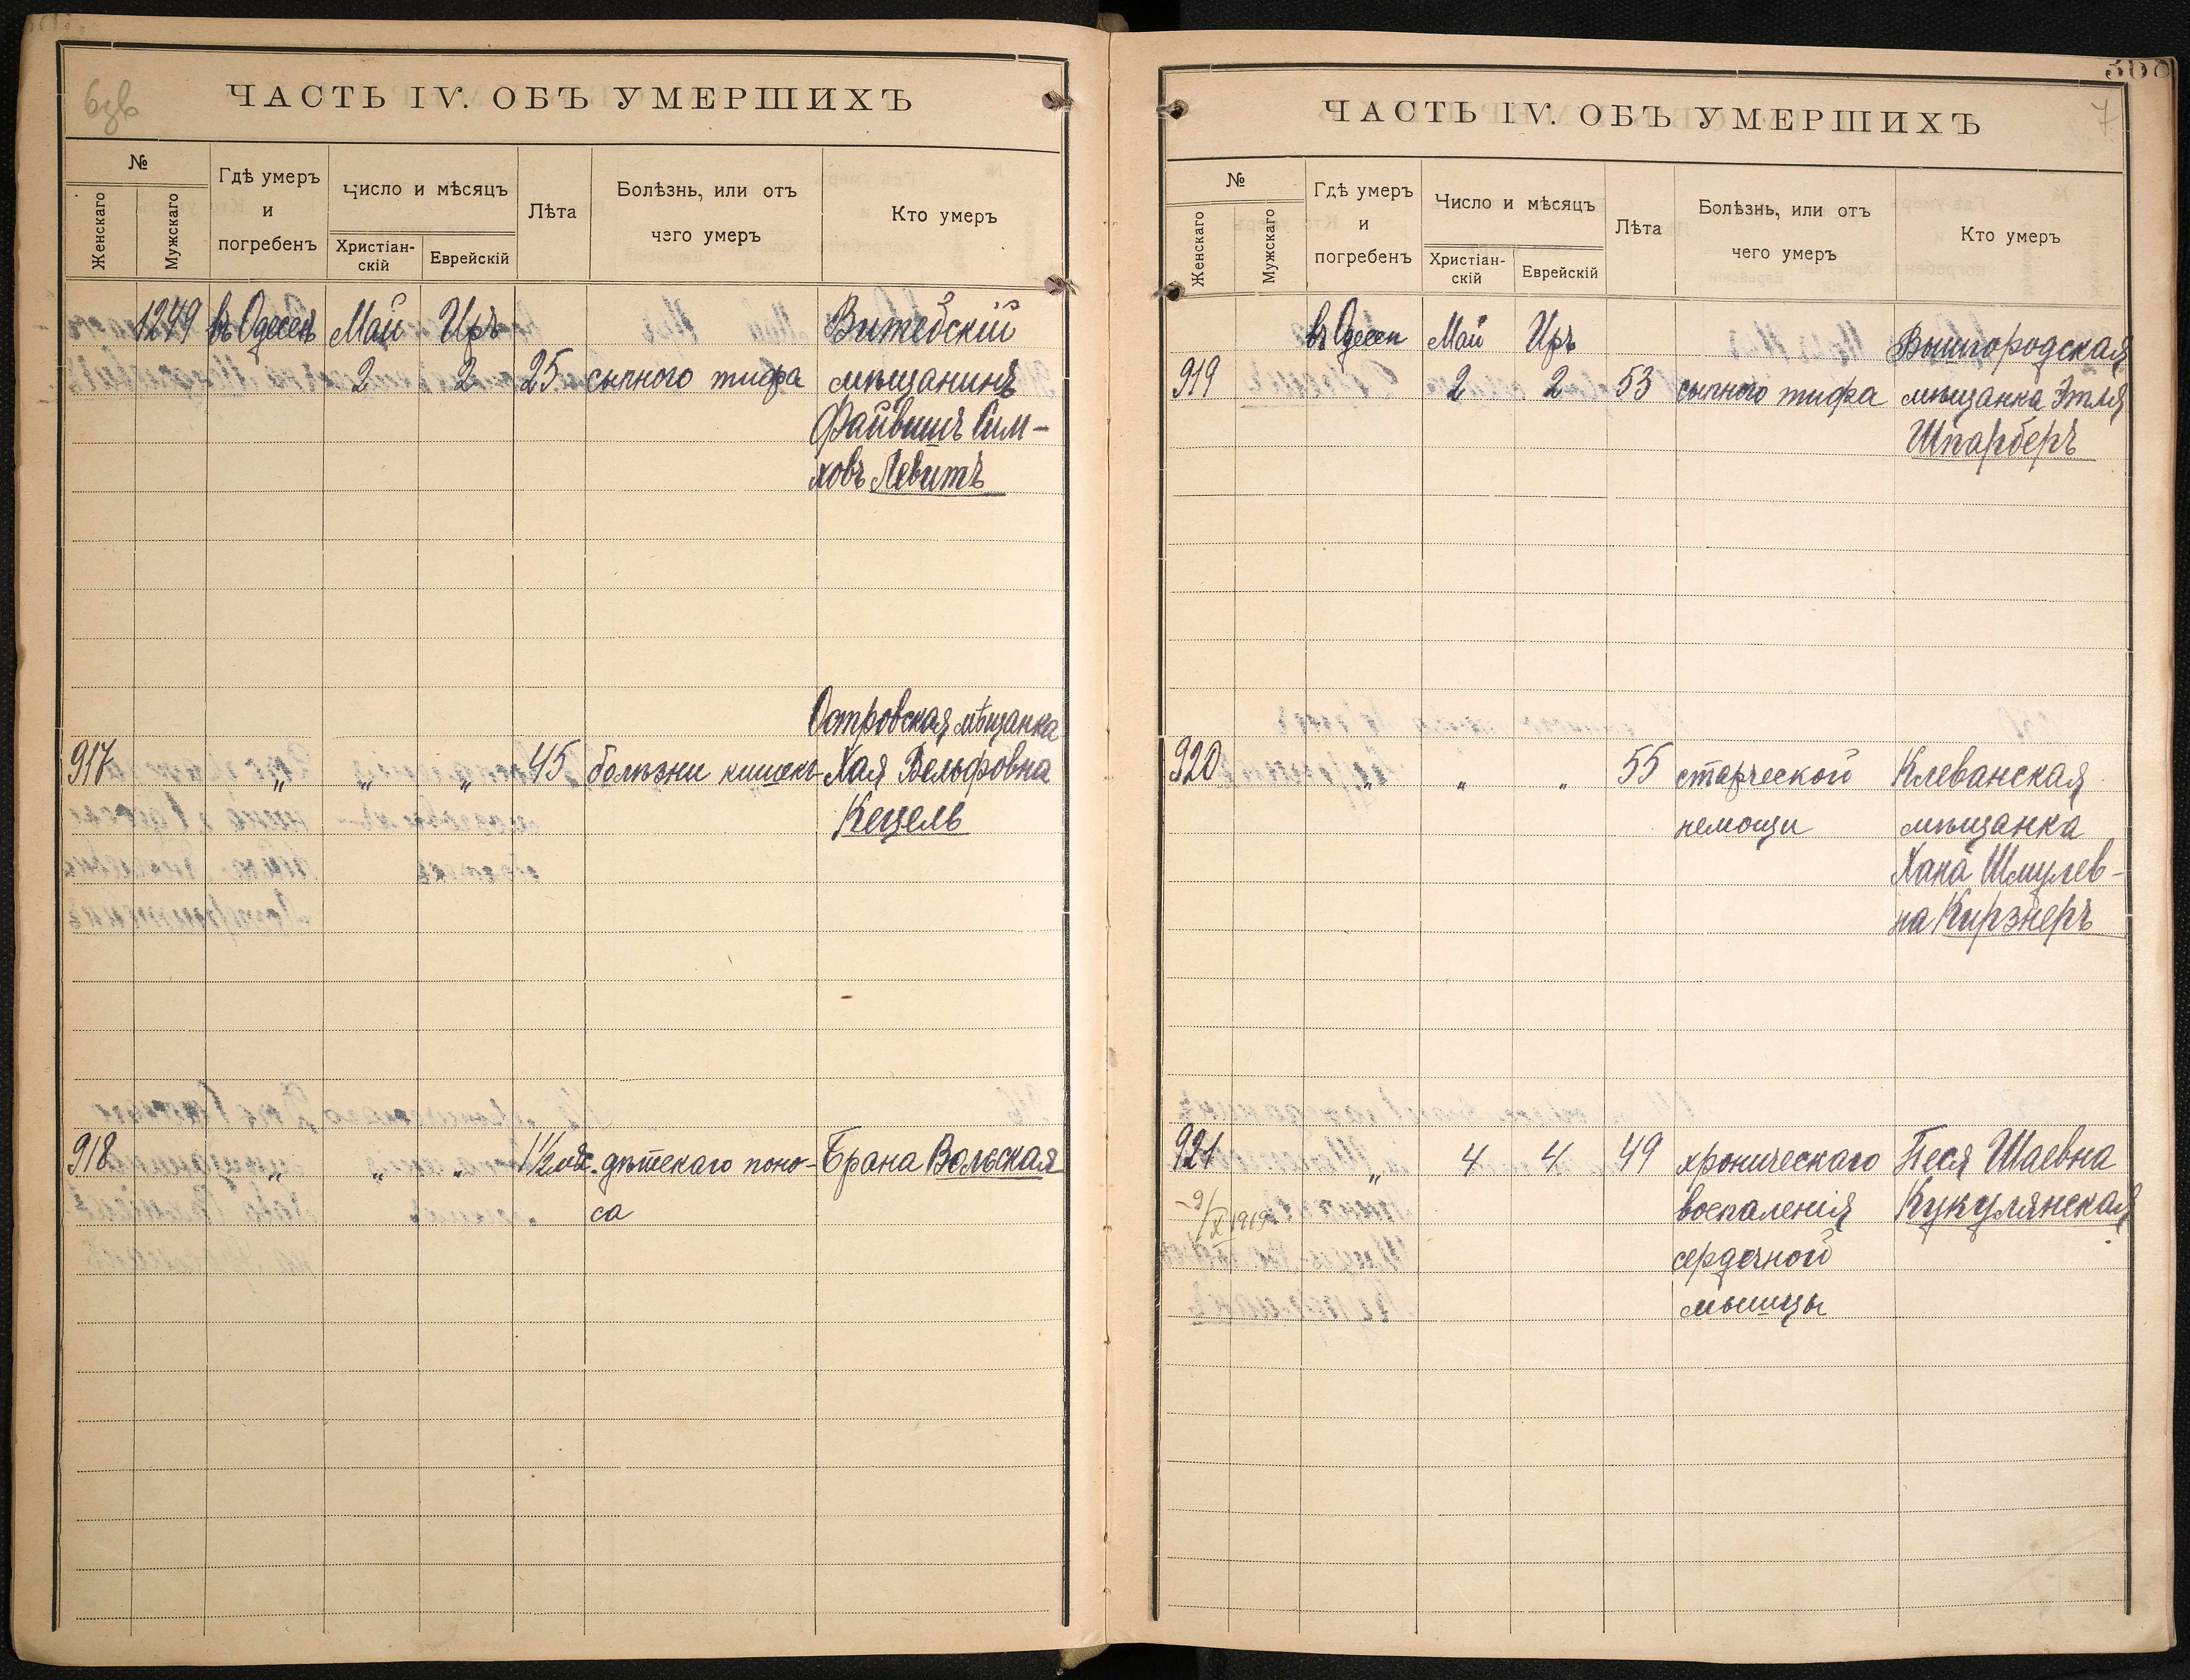 6об
ЧАСТЬ IV. ОБЪ УМЕРШИХЪ
№
Женскаго
Мужскаго
Гдѣ умеръ
и
погребенъ
Число и мѣсяцъ
Христіан-
скій
Еврейскій
Лѣта
Болѣзнь, или отъ
чего умеръ
Кто умеръ
1249 въ Одессѣ Май Иръ Витебскій
2 2 25 сыпного тифа мѣщанинъ
Файвишъ Сим-
ховъ Левитъ
Островская мѣщанка
917 „ „ „ 45 болѣзни кишекъ Хая Вольфовна
Кецель
918 „ „ „ 1½ дѣтскаго поно- Брана Вольская
са
308
7
ЧАСТЬ IV. ОБЪ УМЕРШИХЪ
№
Женскаго
Мужскаго
Гдѣ умеръ
и
погребенъ
Число и мѣсяцъ
Христіан-
скій
Еврейскій
Лѣта
Болѣзнь, или отъ
чего умеръ
Кто умеръ
въ Одессѣ Май Иръ Вышгородская
919 2 2 53 сыпного тифа мѣщанка Этля
Шпарберъ
920 „ „ „ 55 старческой Клеванская
немощи мѣщанка
Хана Шмулев-
на Кирзнеръ
921 „ 4 4 49 хроническаго Песя Шаевна
9/X 1919 воспаленія Кукулянская
сердечной
мышцы